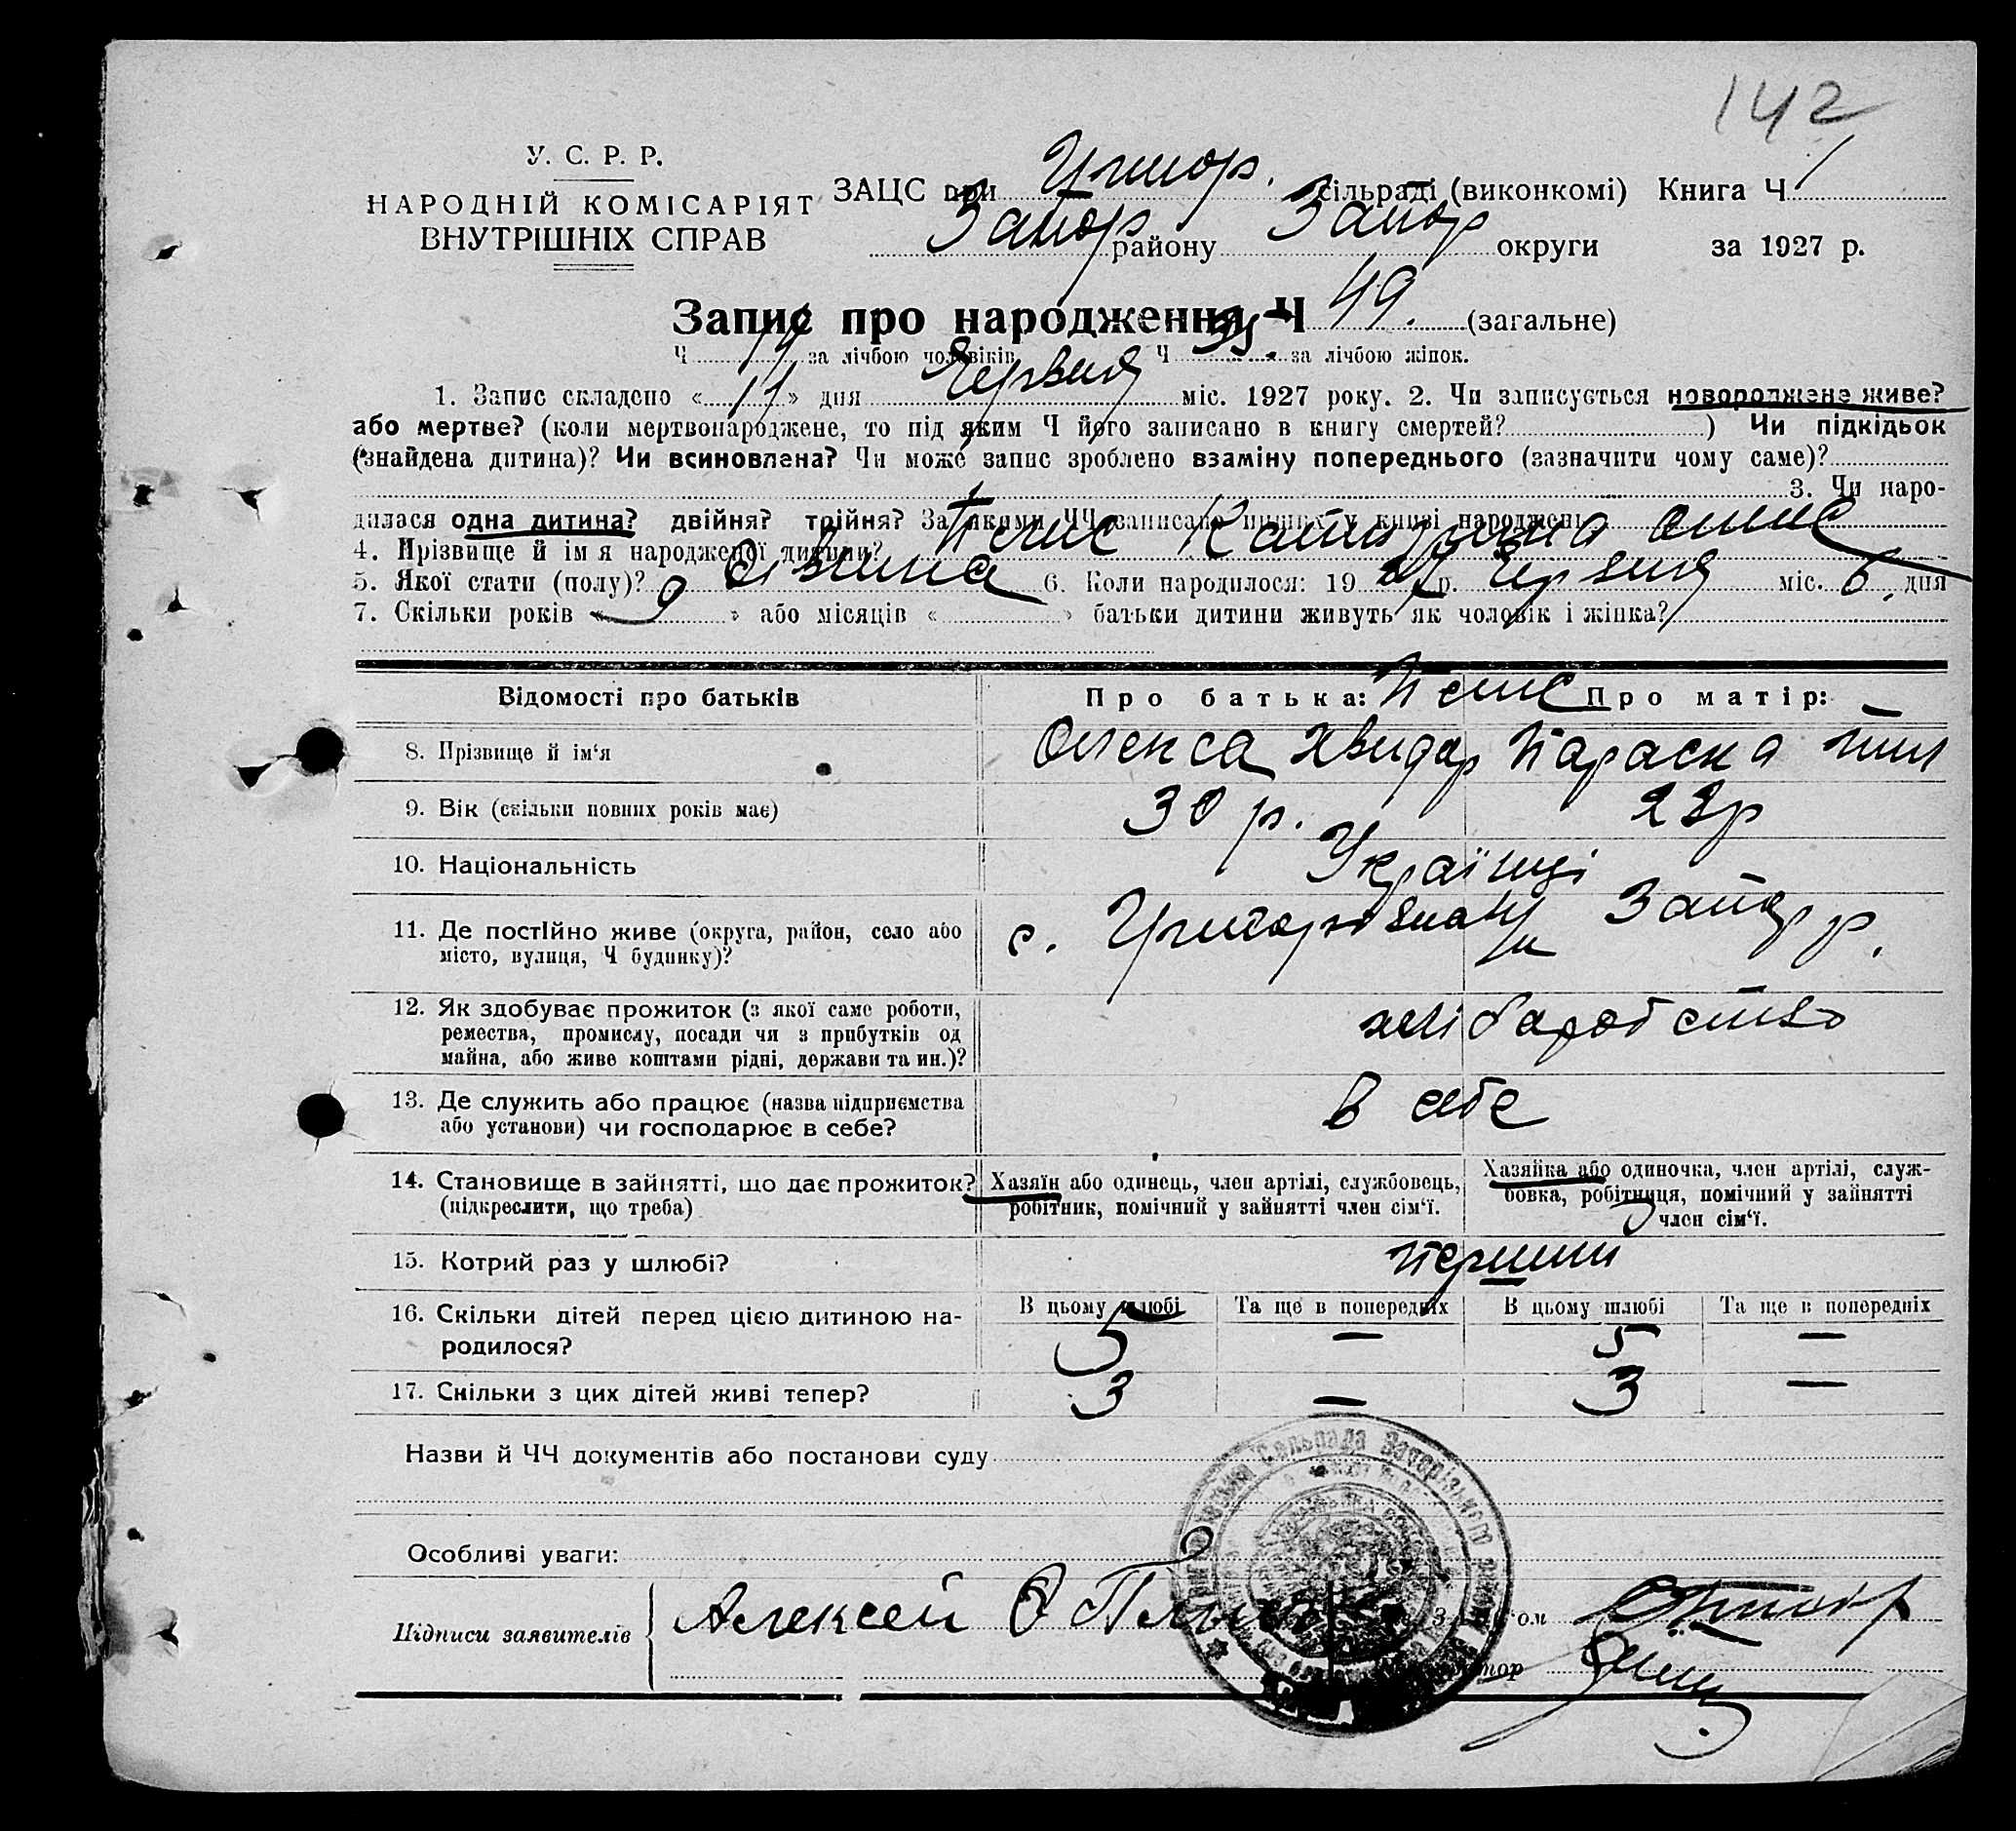 142
У. С. Р. Р.
НАРОДНІЙ КОМІСАРІЯТ
ВНУТРІШНІХ СПРАВ
ЗАЦС при Григор. сільраді (виконкомі) Книга Ч 1
Запор району Запор округи за 1927 р.
Запис про народження Ч 49. (загальне)
Ч за лічбою чоловіків Ч 35 за лічбою жінок.
1. Запис складено « 11 » дня Червня міс. 1927 року. 2. Чи записується новороджене живе?
або мертве? (коли мертвонароджене, то під яким Ч його записано в книгу смертей? ) Чи підкідьок
(знайдена дитина)? Чи всиновлена? Чи може запис зроблено взаміну попереднього (зазначити чому саме)?
3. Чи наро-
дилася одна дитина? двійня? трійня? За якими ЧЧ записано инших у книзі народжень
4. Прізвище й ім'я народженої дитини? Катерина
5. Якої стати (полу)? дівчина 6. Коли народилося: 19 27 р. Червня міс. 6 дня
7. Скільки років « 9 » або місяців « » батьки дитини живуть як чоловік і жінка?
Відомості про батьків Про батька: Про матір:
8. Прізвище й ім'я Олекса Хвидор Параска
9. Вік (скільки повних років має) 30 р. 28р
10. Національність Українці
11. Де постійно живе (округа, район, село або
місто, вулиця, Ч будинку)? с. Григорівка Запор р.
12. Як здобуває прожиток (з якої саме роботи,
ремества, промислу, посади чи з прибутків од
майна, або живе коштами рідні, держави та ин.)? хліборобство
13. Де служить або працює (назва підприємства
або установи) чи господарює в себе? в себе
14. Становище в зайнятті, що дає прожиток?
(підкреслити, що треба)
Хазяїн або одинець, член артілі, службовець,
робітник, помічний у зайнятті член сім'ї.
Хазяйка або одиночка, член артілі, служ-
бовка, робітниця, помічний у зайнятті
член сім'ї.
15. Котрий раз у шлюбі? перший
16. Скільки дітей перед цією дитиною на-
родилося?
В цьому шлюбі Та ще в попередніх В цьому шлюбі Та ще в попередніх
5 — 5 —
17. Скільки з цих дітей живі тепер? 3 — 3 —
Назви й ЧЧ документів або постанови суду
Особливі уваги:
Підписи заявителів Алексей О